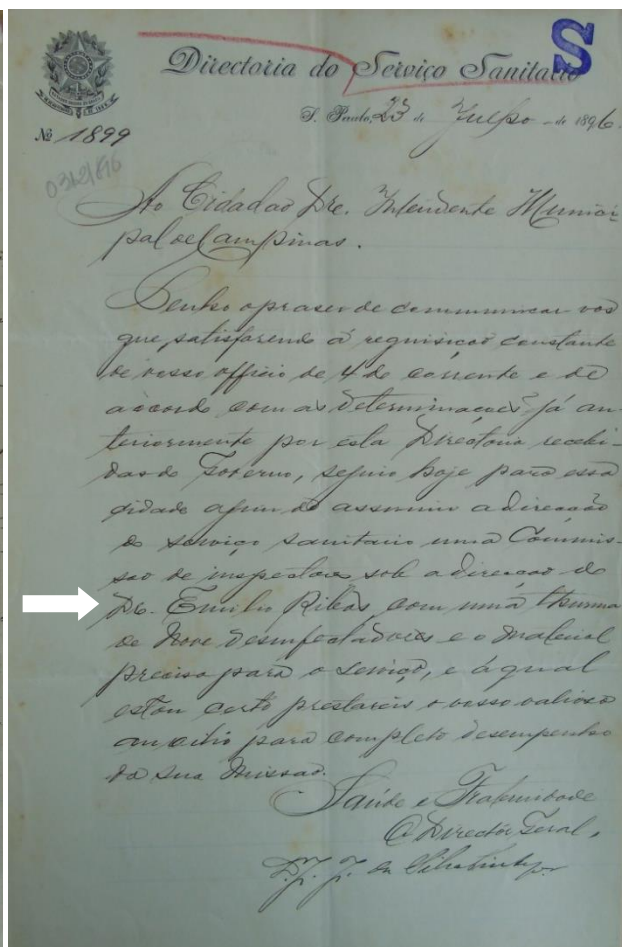 S
Directoria do Serviço Sanitario
S. Paulo, 23 de Julho de 1896.
Nº 1899
0312/896
Ao Cidadao Dr. Intendente Munici-
pal de Campinas.
Tenho o praser de communicar-vos
que, satisfazendo á requisicao constante
de vosso officio de 4 do corrente e de
accordo com as determinações já an-
teriormente por esta Directoria recebi-
das do Governo, seguio hoje para essa
cidade afim de assumir a direcção
do serviço sanitario uma Commis-
sao de inspectores sob a direcçao do
Dr. Emilio Ribas com uma thurma
de nove desinfectadores e o material
preciso para o serviço, e á qual
estou certo prestareis o vosso valioso
auxilio para completo desempenho
da sua missao.
Saúde e Fraternidade
O Director Geral,